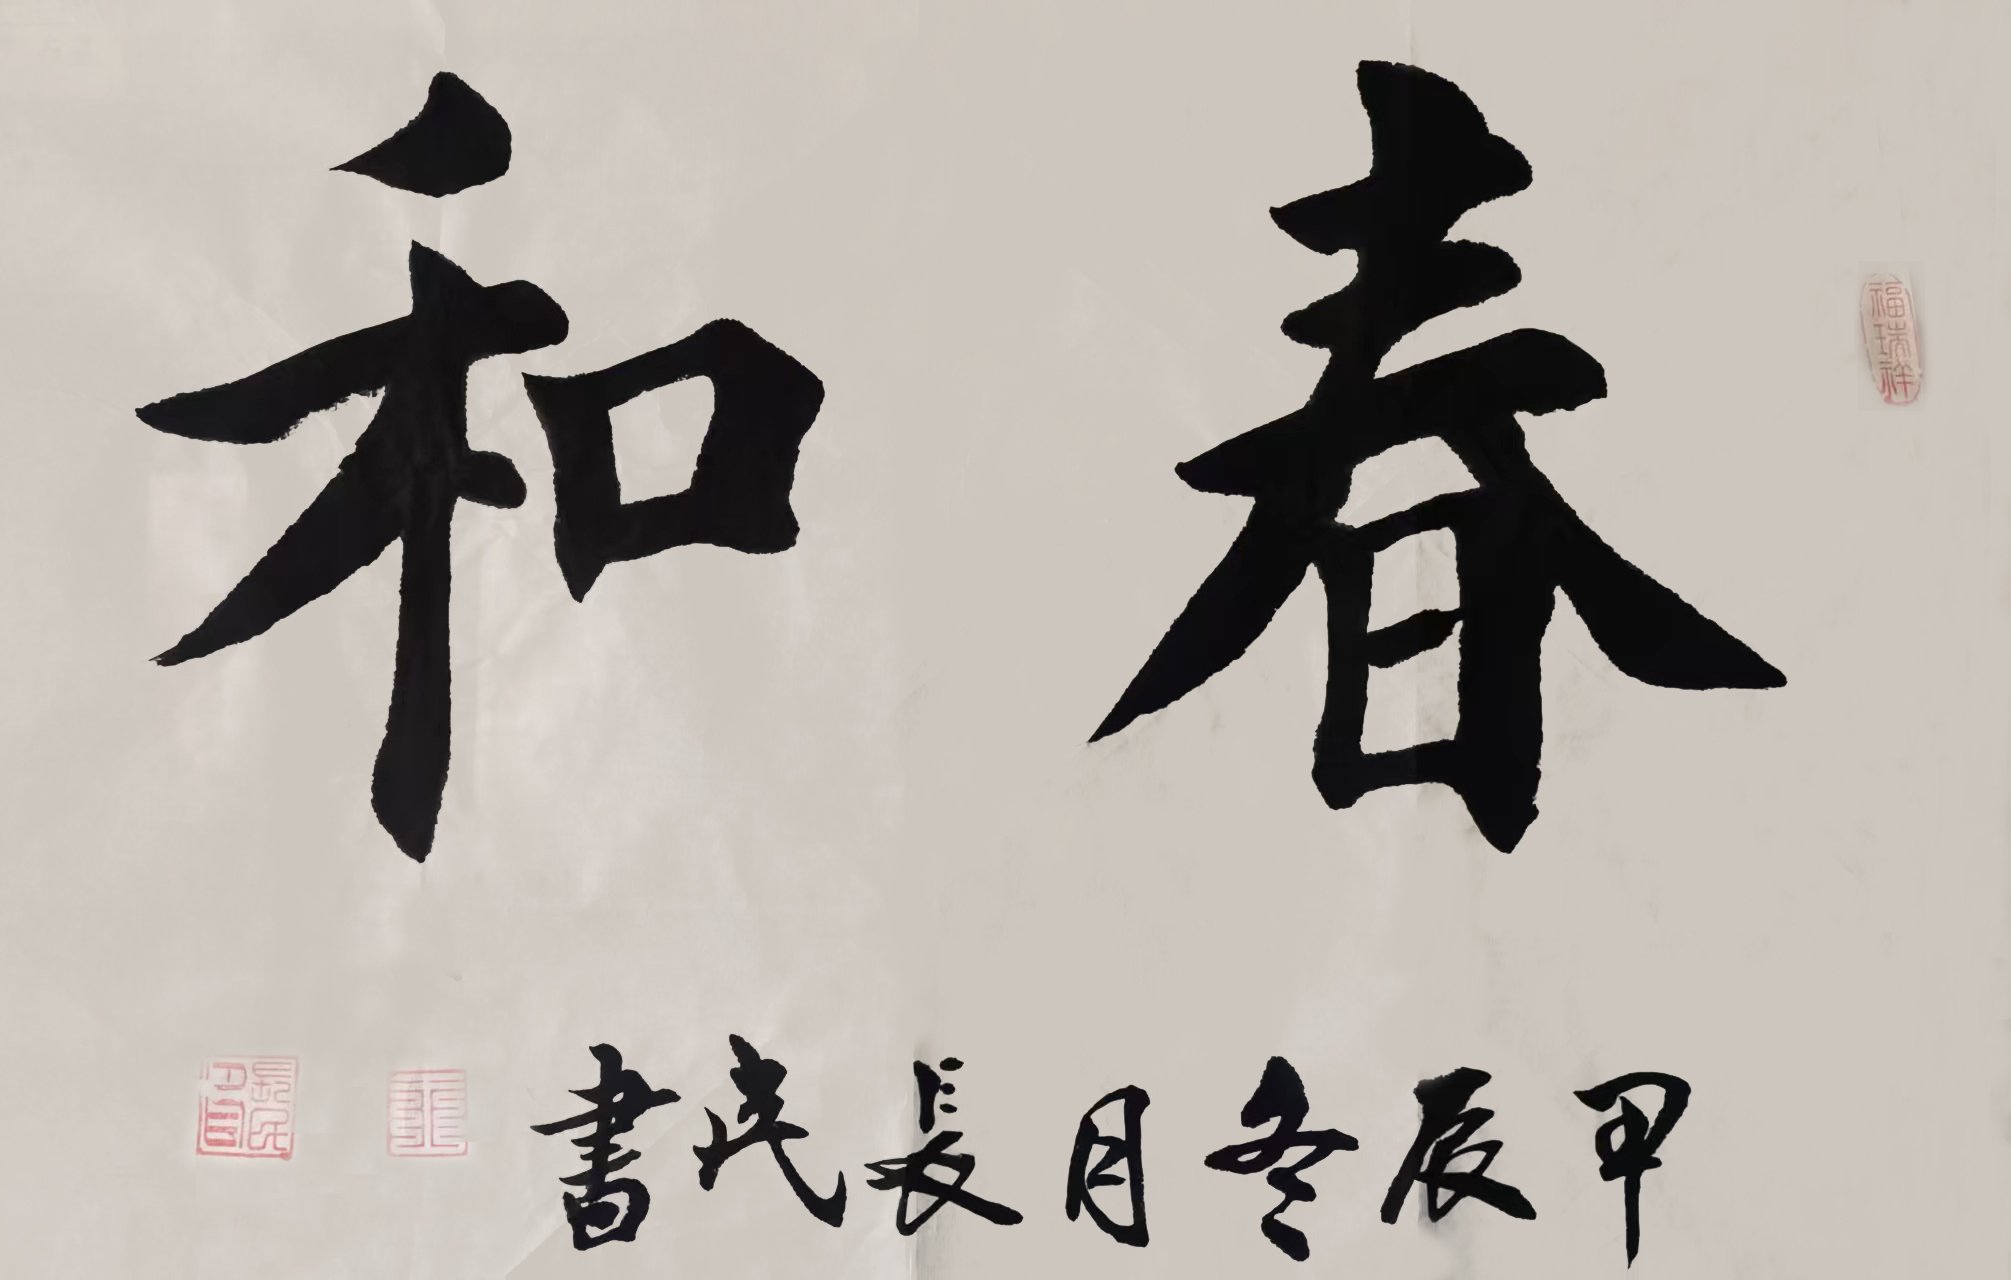 春和
甲辰冬月長民書
福瑞祥